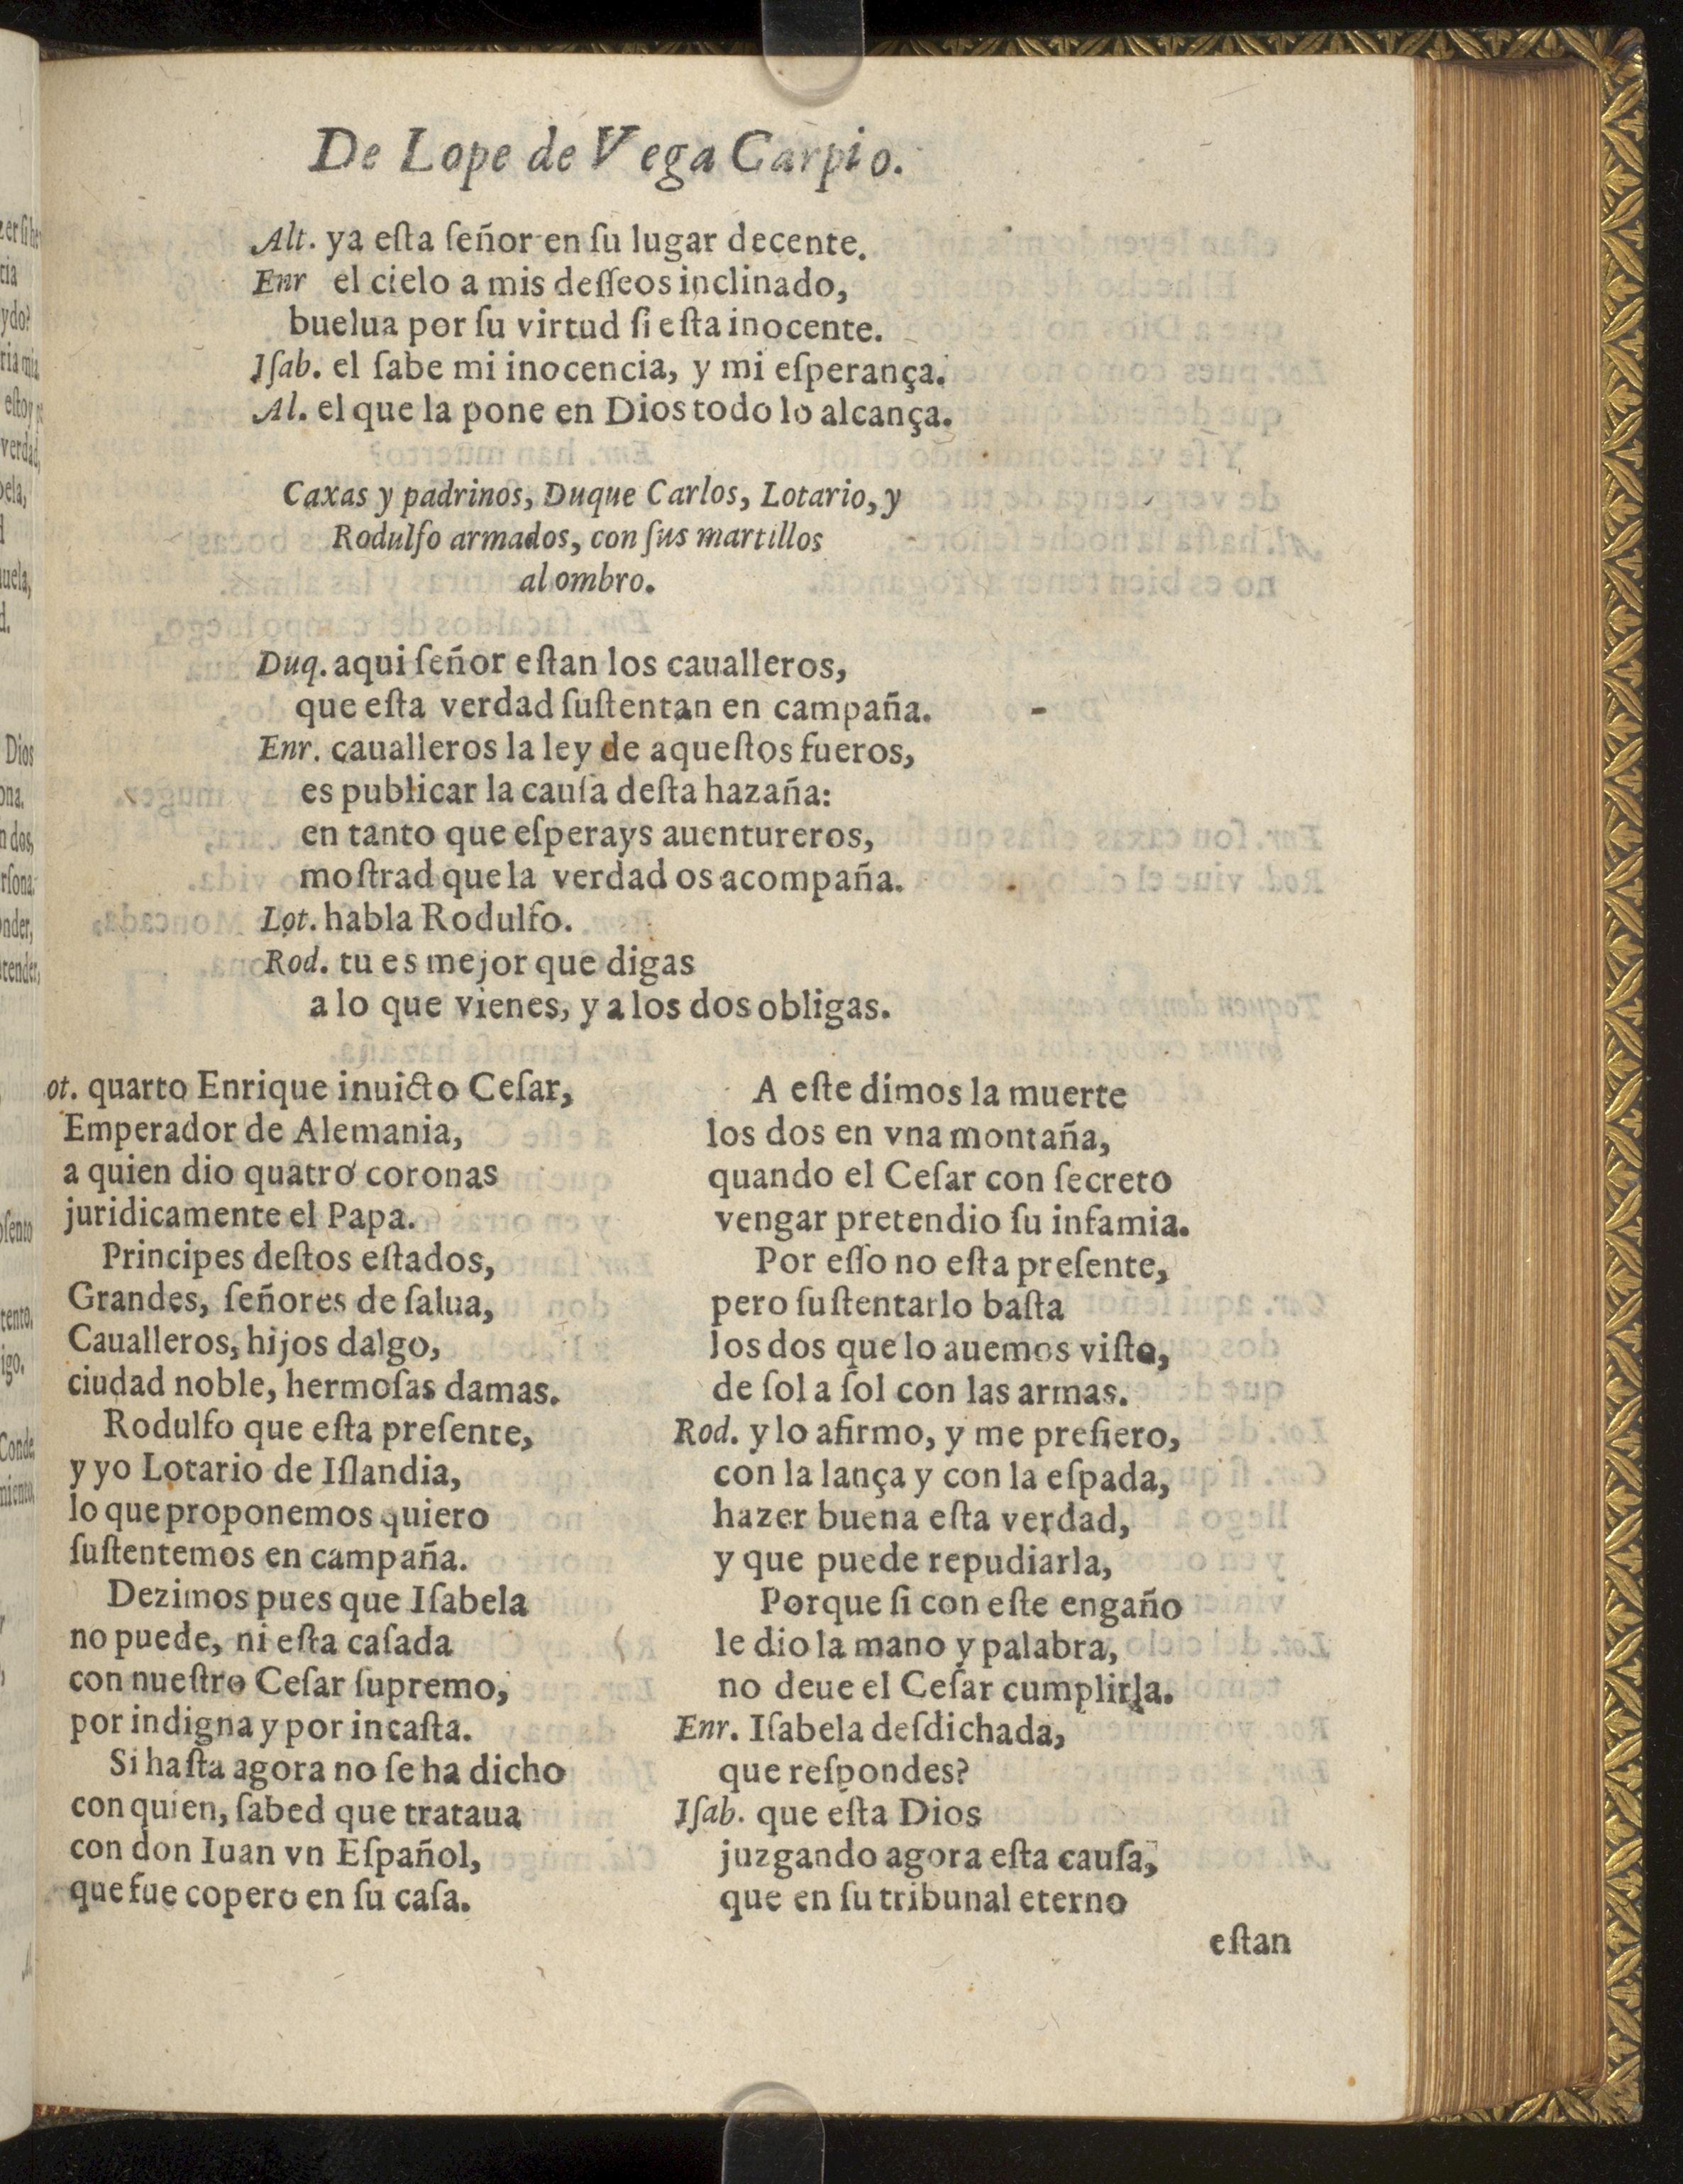 De Lope de Vega Carpio.
Alt. ya eſta ſeñor en ſu lugar decente.
Enr el cielo a mis deſſeos inclinado,
buelua por ſu virtud ſi eſta inocente.
Iſab. el ſabe mi inocencia, y mi eſperança.
Al. el que la pone en Dios todo lo alcança.
Caxas y padrinos, Duque Carlos, Lotario, y
Rodulfo armados, con ſus martillos
al ombro.
Duq. aqui ſeñor eſtan los caualleros,
que eſta verdad ſuſtentan en campaña.
Enr. caualleros la ley de aqueſtos fueros,
es publicar la cauſa deſta hazaña:
en tanto que eſperays auentureros,
moſtrad que la verdad os acompaña.
Lot. habla Rodulfo.
Rod. tu es mejor que digas
a lo que vienes, y a los dos obligas.
ot. quarto Enrique inuicto Ceſar,
Emperador de Alemania,
a quien dio quatro coronas
juridicamente el Papa.
Principes deſtos eſtados,
Grandes, ſeñores de ſalua,
Caualleros, hijos dalgo,
ciudad noble, hermoſas damas.
Rodulfo que eſta preſente,
y yo Lotario de Iſlandia,
lo que proponemos quiero
ſuſtentemos en campaña.
Dezimos pues que Iſabela
no puede, ni eſta caſada
con nueſtro Ceſar ſupremo,
por indigna y por incaſta.
Si haſta agora no ſe ha dicho
con quien, ſabed que trataua
con don Iuan vn Eſpañol,
que fue copero en ſu caſa.
A eſte dimos la muerte
los dos en vna montaña,
quando el Ceſar con ſecreto
vengar pretendio ſu infamia.
Por eſſo no eſta preſente,
pero ſuſtentarlo baſta
los dos que lo auemos viſto,
de ſol a ſol con las armas.
Rod. y lo afirmo, y me prefiero,
con la lança y con la eſpada,
hazer buena eſta verdad,
y que puede repudiarla,
Porque ſi con eſte engaño
le dio la mano y palabra,
no deue el Ceſar cumplirla.
Enr. Iſabela deſdichada,
que reſpondes?
Iſab. que eſta Dios
juzgando agora eſta cauſa,
que en ſu tribunal eterno
eſtan